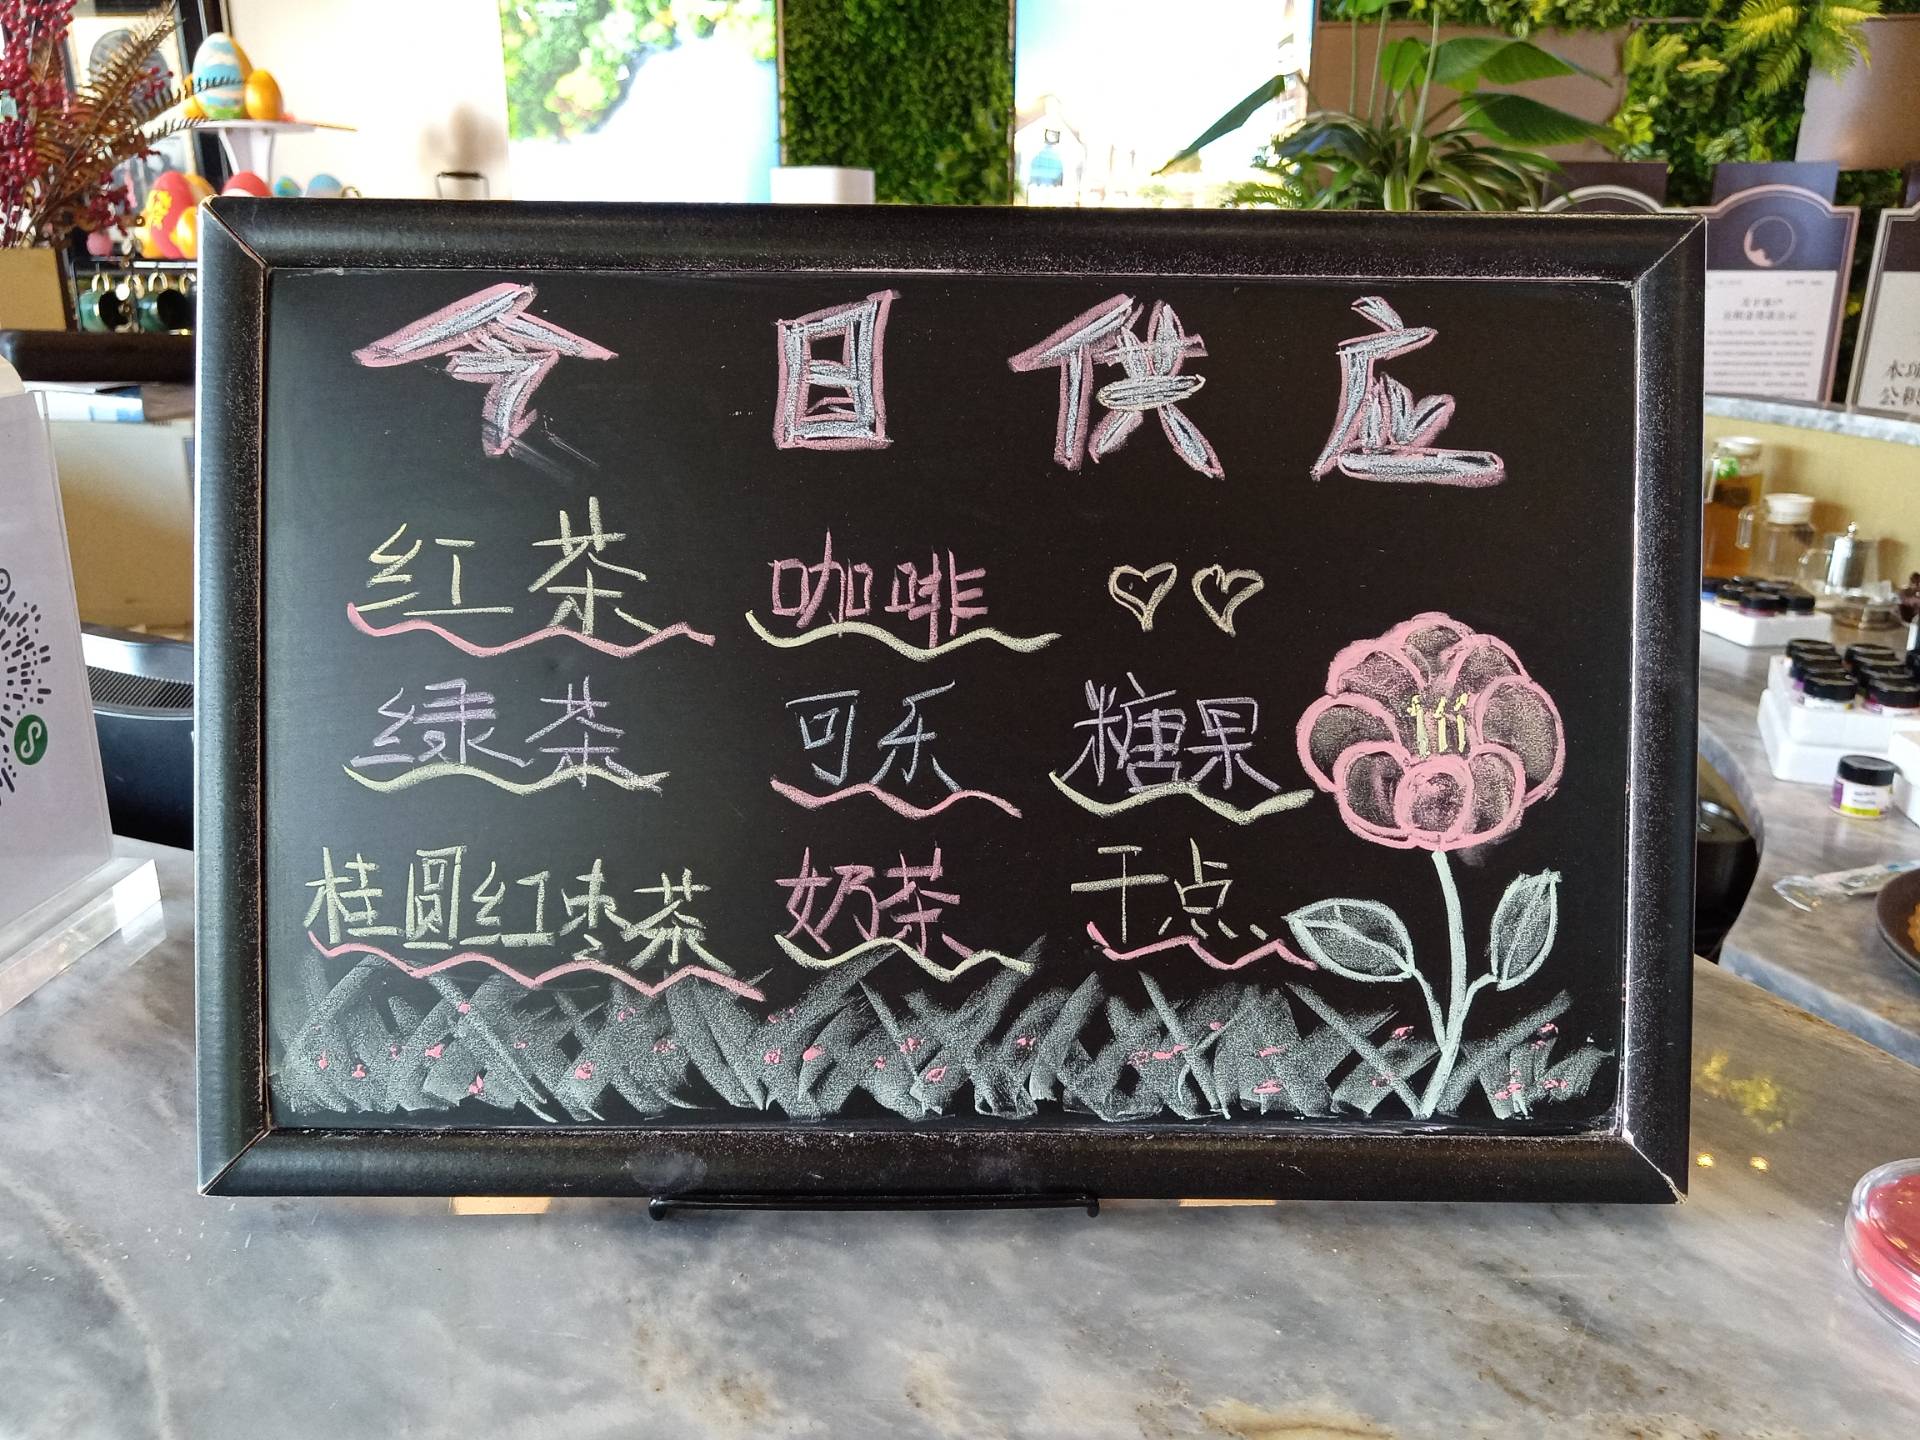 今日供应
红茶 咖啡
绿茶 可乐 糖果
桂圆红枣茶 奶茶 干点